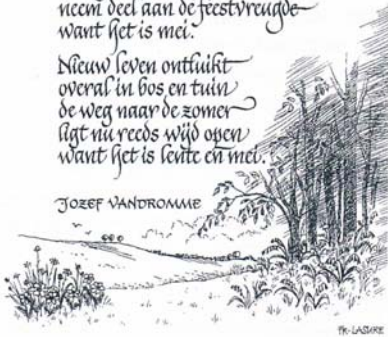 neem deel aan de feestvreugde
want het is mei.
Nieuw leven ontluikt
overal in bos en tuin
de weg naar de zomer
ligt nu reeds wijd open
want het is lente en mei.
JOZEF VANDROMME
FR. LASURE